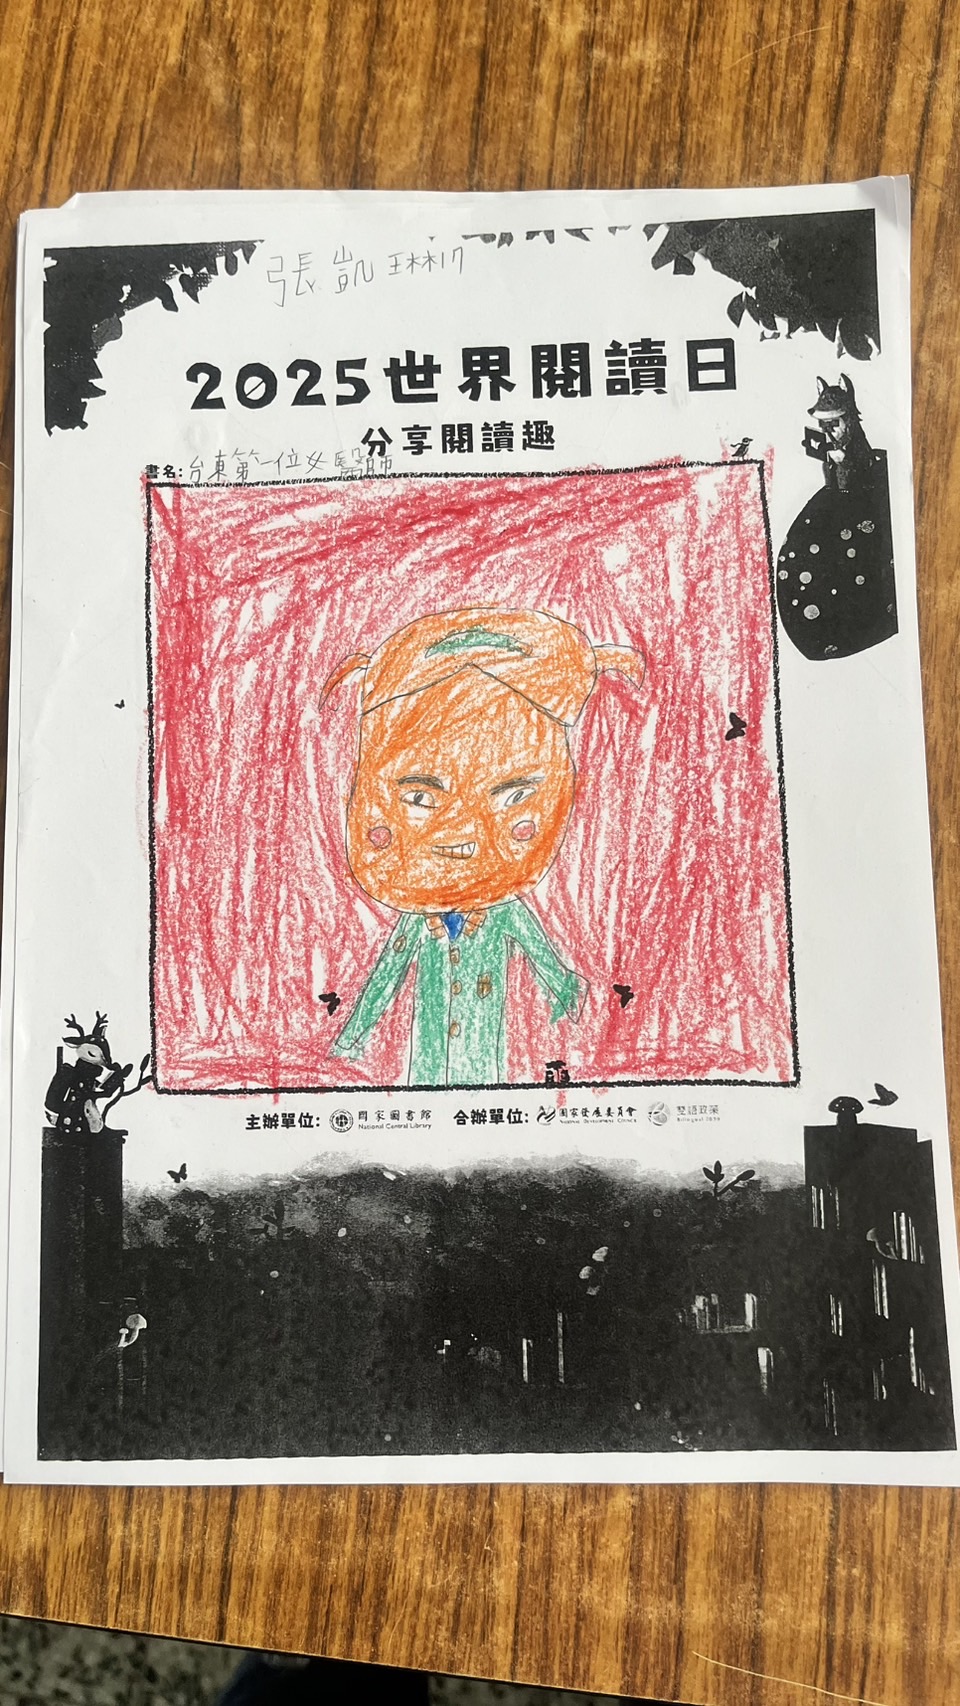 張凱琳17
2025世界閱讀日
分享閱讀趣
書名:台東第一位女醫師
主辦單位: 國家圖書館 National Central Library 合辦單位: 國家發展委員會 NATIONAL DEVELOPMENT COUNCIL 雙語政策 Bilingual 2030